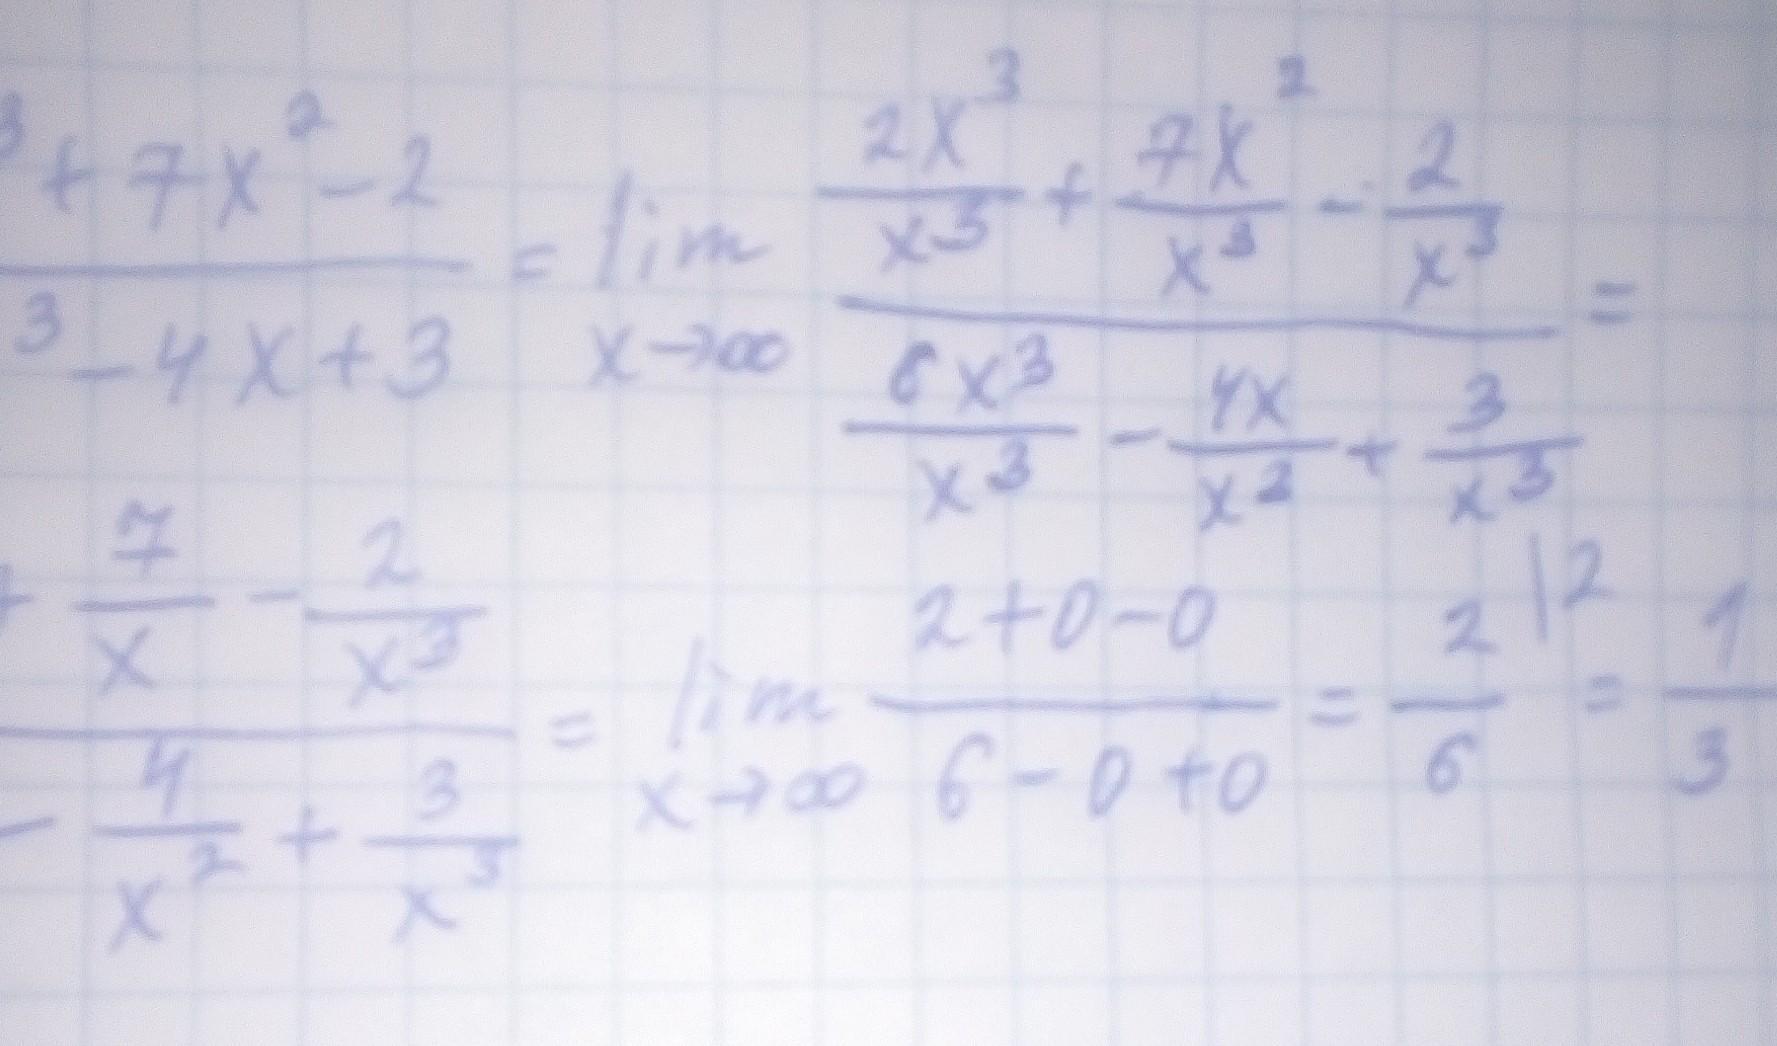 ³ + 7x² - 2 / ³ - 4x + 3 = lim x→∞ (2x³/x³ + 7x²/x³ - 2/x³) / (6x³/x³ - 4x/x³ + 3/x³) =
+ 7/x - 2/x³ / - 4/x² + 3/x³ = lim x→∞ (2+0-0)/(6-0+0) = 2/6 |2 = 1/3